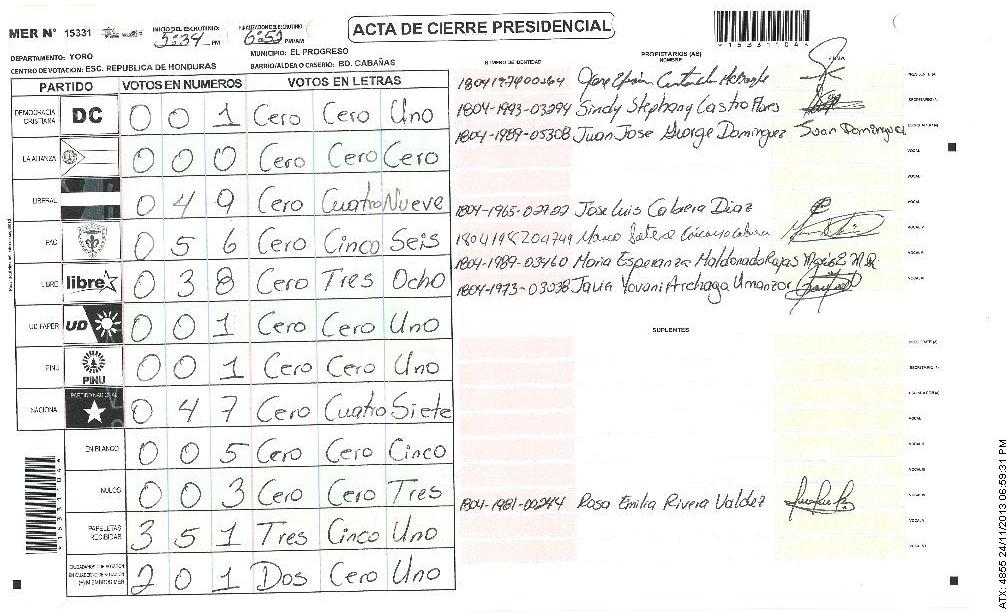 MER N° 15331
INICIO DEL ESCRUTINIO: 5:34 PM
FINALIZACION DEL ESCRUTINIO 6:52 PM/AM
ACTA DE CIERRE PRESIDENCIAL
*15331104*
DEPARTAMENTO: YORO
MUNICIPIO: EL PROGRESO
CENTRO DE VOTACION: ESC. REPUBLICA DE HONDURAS
BARRIO/ALDEA O CASERIO: BO. CABAÑAS
PARTIDO VOTOS EN NUMEROS VOTOS EN LETRAS
DEMOCRACIA CRISTIANA DC 0 0 1 Cero Cero Uno
LA ALIANZA 0 0 0 Cero Cero Cero
LIBERAL 0 4 9 Cero Cuatro Nueve
PAC 0 5 6 Cero Cinco Seis
LIBRE libre 0 3 8 Cero Tres Ocho
UD FAPER UD 0 0 1 Cero Cero Uno
PINU PINU 0 0 1 Cero Cero Uno
NACIONAL PARTIDO NACIONAL 0 4 7 Cero Cuatro Siete
EN BLANCO 0 0 5 Cero Cero Cinco
NULOS 0 0 3 Cero Cero Tres
PAPELETAS RECIBIDAS 3 5 1 Tres Cinco Uno
CIUDADANOS QUE VOTARON EN CUADERNO DE VOTACION (+) MIEMBROS MER 2 0 1 Dos Cero Uno
NUMERO DE IDENTIDAD
PROPIETARIOS (AS)
NOMBRE
FIRMA
PRESIDENTE (A)
1804-1993-03294 Sindy Stephany Castro Flores SECRETARIO (A)
1804-1989-05308 Juan Jose George Dominguez Juan Dominguez
VOCAL
VOCAL
1804-1965-02722 Jose Luis Cabrera Diaz
1804-1989-03460 Maria Esperanza Maldonado Rojas
1804-1973-03038 Javis Yovani Archaga Umanzor
SUPLENTES
PRESIDENTE (A)
SECRETARIO (A)
VOCAL
1804-1981-00244 Rosa Emilia Rivera Valdez
*15331104*
ATX: 4855 24/11/2013 06:59:31 PM